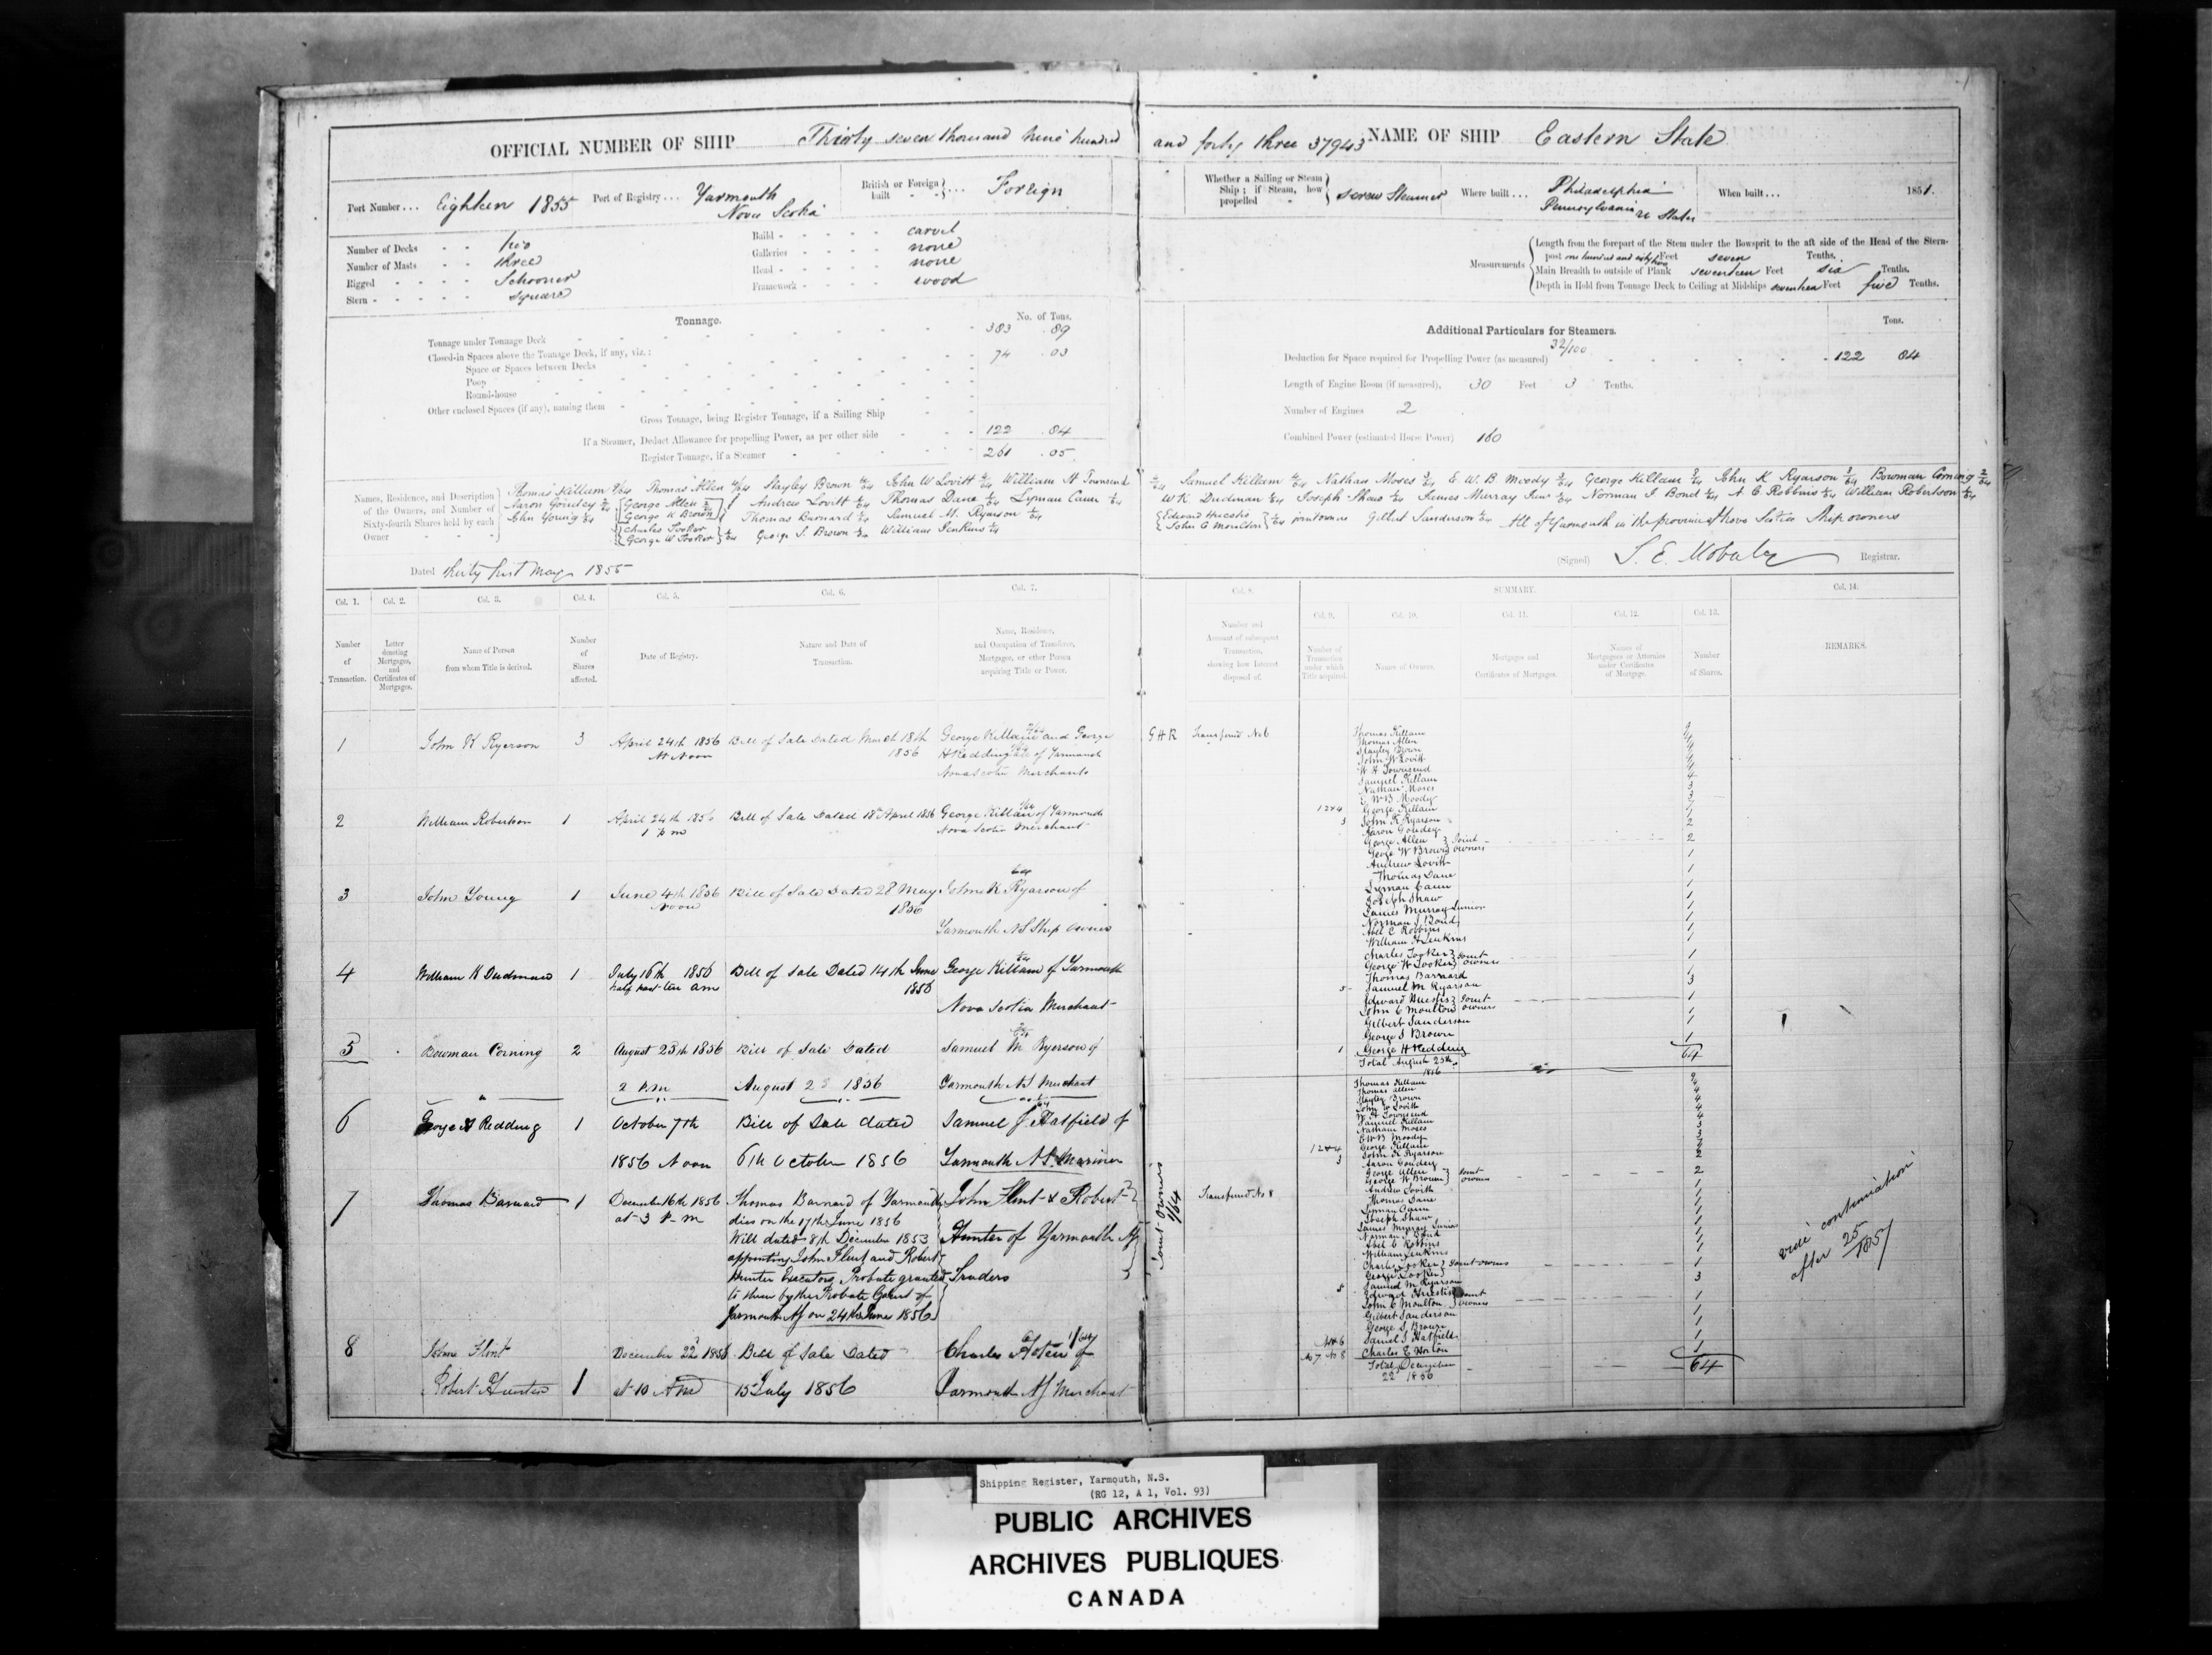 OFFICIAL NUMBER OF SHIP Thirty seven thousand nine hundred and forty three 37943 NAME OF SHIP Eastern State
Port Number... Eighteen 1855 Port of Registry... Yarmouth Nova Scotia British or Foreign built Foreign
Whether a Sailing or Steam Ship; if Steam, how propelled screw Steamer Where built... Philadelphia Pennsylvania When built... 1851.
Number of Decks two
Number of Masts three
Rigged Schooner
Stern square
Build carvel
Galleries none
Head none
Framework wood
Measurements
Length from the forepart of the Stem under the Bowsprit to the aft side of the Head of the Stern-
post one hundred and sixty Feet seven Tenths.
Main Breadth to outside of Plank seventeen Feet six Tenths.
Depth in Hold from Tonnage Deck to Ceiling at Midships seventeen Feet five Tenths.
Tonnage. No. of Tons.
Tonnage under Tonnage Deck 383 .89
Closed-in Spaces above the Tonnage Deck, if any, viz.: 74 .03
Space or Spaces between Decks
Poop
Round-house
Other enclosed Spaces (if any), naming them
Gross Tonnage, being Register Tonnage, if a Sailing Ship
If a Steamer, Deduct Allowance for propelling Power, as per other side 122 .84
Register Tonnage, if a Steamer 261 .05
Additional Particulars for Steamers. Tons.
32/100
Deduction for Space required for Propelling Power (as measured) 122 84
Length of Engine Room (if measured), 30 Feet 3 Tenths.
Number of Engines 2
Combined Power (estimated Horse Power) 160
Names, Residence, and Description of the Owners, and Number of Sixty-fourth Shares held by each Owner
Thomas Killam Thomas Allen Stayley Brown John W Lovitt William H Townsend
Samuel Killam Nathan Moses E. W. B Moody George Killam John K Ryarson Bowman Corning
Aaron Goudey George Allen George W Brown Andrew Lovitt Thomas Dane Lyman Cann
W K Dudman Joseph Shaw James Murray Norman J Bond A C Robbins William Robertson
John Young Thomas Barnard Samuel M. Ryarson
Edward Huestis John C Moulton joint owners Gilbert Sanderson All of Yarmouth in the province of Nova Scotia Ship owners
Charles Tooker George W Tooker George S. Brown William Jenkins
Dated thirty first May 1855
(Signed) Registrar.
Col. 1. Col. 2. Col. 3. Col. 4. Col. 5. Col. 6. Col. 7. Col. 8. SUMMARY. Col. 14.
Col. 9. Col. 10. Col. 11. Col. 12. Col. 13.
Number of Transaction.
Letter denoting Mortgages, and Certificates of Mortgages.
Name of Person from whom Title is derived.
Number of Shares affected.
Date of Registry.
Nature and Date of Transaction.
Name, Residence, and Occupation of Transferee, Mortgagee, or other Person acquiring Title or Power.
Number and Amount of subsequent Transaction, showing how Interest disposed of.
Number of Transaction under which Title acquired.
Name of Owners.
Mortgages and Certificates of Mortgages.
Names of Mortgagees or Attornies under Certificates of Mortgage.
Number of Shares.
REMARKS.
1 John K Ryerson 3 April 24th 1856 At Noon Bill of Sale Dated March 18th 1856 George Killam and George H Redding of Yarmouth Nova Scotia Merchants
G H R Transferred No 6
2 William Robertson 1 April 24th 1856 1 P m Bill of Sale Dated 18th April 1856 George Killam of Yarmouth Nova Scotia Merchant
3 John Young 1 June 4th 1856 Noon Bill of Sale Dated 28 May 1856 John K Ryarson of Yarmouth NS Ship owner
4 William K Dudman 1 July 16th 1856 half past ten am Bill of Sale Dated 14th June 1856 George Killam of Yarmouth Nova Scotia Merchant
5 Bowman Corning 2 August 25th 1856 2 P.m Bill of Sale Dated August 25 1856 Samuel M Ryerson of Yarmouth NS Merchant
6 George H Redding 1 October 7th 1856 Noon Bill of Sale dated 6th October 1856 Samuel J. Hatfield of Yarmouth NS Mariner
7 Thomas Barnard 1 December 16th 1856 at 3 P m
Thomas Barnard of Yarmouth
dies on the 17th June 1856
Will dated 8th December 1853
appointing John Flint and Robert
Hunter Executors, Probate granted
to them by the Probate Court of
Yarmouth NS on 24th June 1856
John Flint & Robert Hunter of Yarmouth NS Traders
Joint owners 1/64
Transferred No 8
8 John Flint Robert Hunter 1 December 22d 1856 at 10 AM Bill of Sale Dated 15 July 1856 Charles E Horton of Yarmouth NS Merchant
Thomas Killam
Thomas Allen
Stayley Brown
John W Lovitt
W H Townsend
Samuel Killam
Nathan Moses
E W B Moody
1 2 & 4 George Killam
3 John K Ryarson
Aaron Goudey
George Allen
George W Brown Joint owners
Andrew Lovitt
Thomas Dane
Lyman Cann
Joseph Shaw
James Murray Junior
Norman J Bond
Abel C Robbins
William H Jenkins
Charles Tooker
George W Tooker Joint owners
Thomas Barnard
5 Samuel M Ryarson 3
Edward Huestis
John C Moulton Joint owners
Gilbert Sanderson
George S Brown
1 George H Redding 1
Total August 25th 1856 64
Thomas Killam
Thomas Allen
Stayley Brown
John W Lovitt
W H Townsend
Samuel Killam
Nathan Moses
E W B Moody
1 2 & 4 George Killam
3 John K Ryarson
Aaron Goudey
George Allen
George W Brown Joint owners
Andrew Lovitt
Thomas Dane
Lyman Cann
Joseph Shaw
James Murray Junior
Norman J Bond
Abel C Robbins
William Jenkins
Charles Tooker
George Tooker Joint owners
5 Samuel M Ryarson 3
Edward Huestis
John C Moulton Joint owners
Gilbert Sanderson
George S. Brown
No 6 Samuel J Hatfield
No 7 No 8 Charles E Horton 1
Total December 22 1856 64
vide continuation after 25/1857
Shipping Register, Yarmouth, N.S.
(RG 12, A 1, Vol. 93)
PUBLIC ARCHIVES
ARCHIVES PUBLIQUES
CANADA